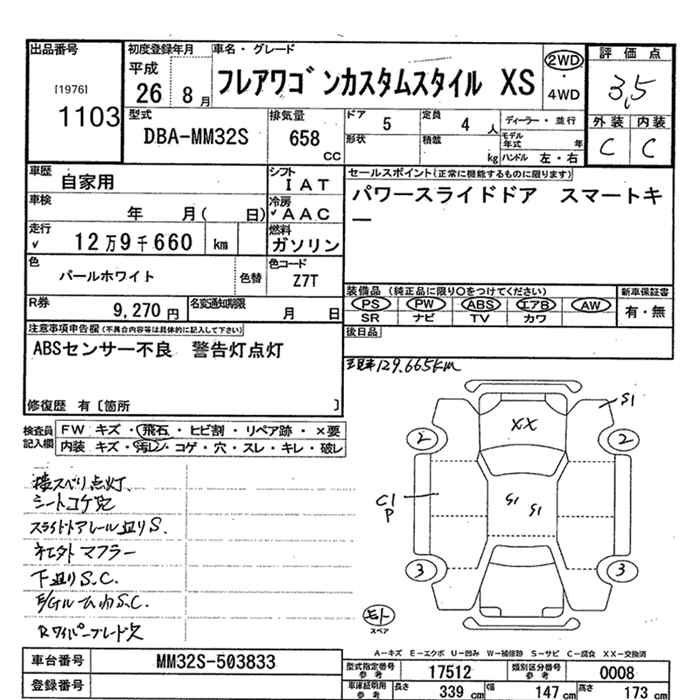 出品番号
[1976]
1103
初度登録年月
平成
26 8月
車名・グレード
フレアワゴンカスタムスタイル XS
2WD
・
4WD
評価点
3.5
外装 内装
C C
型式
DBA-MM32S
排気量
658
CC
ドア 5
定員 4 人
形状
積載 kg
ディーラー・並行
モデル年式 年
ハンドル 左・右
車歴
自家用
シフト
IAT
車検
年 月( 日)
冷房
✓AAC
走行
✓ 12万9千660 km
燃料
ガソリン
色
パールホワイト
色替
色コード
Z7T
R券
9,270 円
名変通知期限
月 日
セールスポイント(正常に機能するものに限ります)
パワースライドドア スマートキ
ー
装備品(純正品に限り○をつけてください)
PS PW ABS エアB AW
SR ナビ TV カワ
新車保証書
有・無
後日品
注意事項申告欄(不具合内容等は具体的に記入して下さい)
ABSセンサー不良 警告灯点灯
修復歴 有〔箇所 〕
129.665km
検査員
記入欄
FW キズ・飛石・ヒビ割・リペア跡・×要
内装 キズ・汚レ・コゲ・穴・スレ・キレ・破レ
横スベリ点灯、
シートコゲ穴
スライドドアレール辺りS.
ネエクト マフラー
下辺りS.C.
E/Gルーム内S.C.
Rワイパーブレード欠
XX
S1
2
2
C1
P
S1
S1
3
3
モト
スペア
A-キズ E-エクボ U-凹み W-補修跡 S-サビ C-腐食 XX-交換済
車台番号
MM32S-503833
登録番号
型式指定番号
参考
17512
類別区分番号
参考
0008
車庫証明用
参考
長さ 339 cm
幅 147 cm
高さ 173 cm